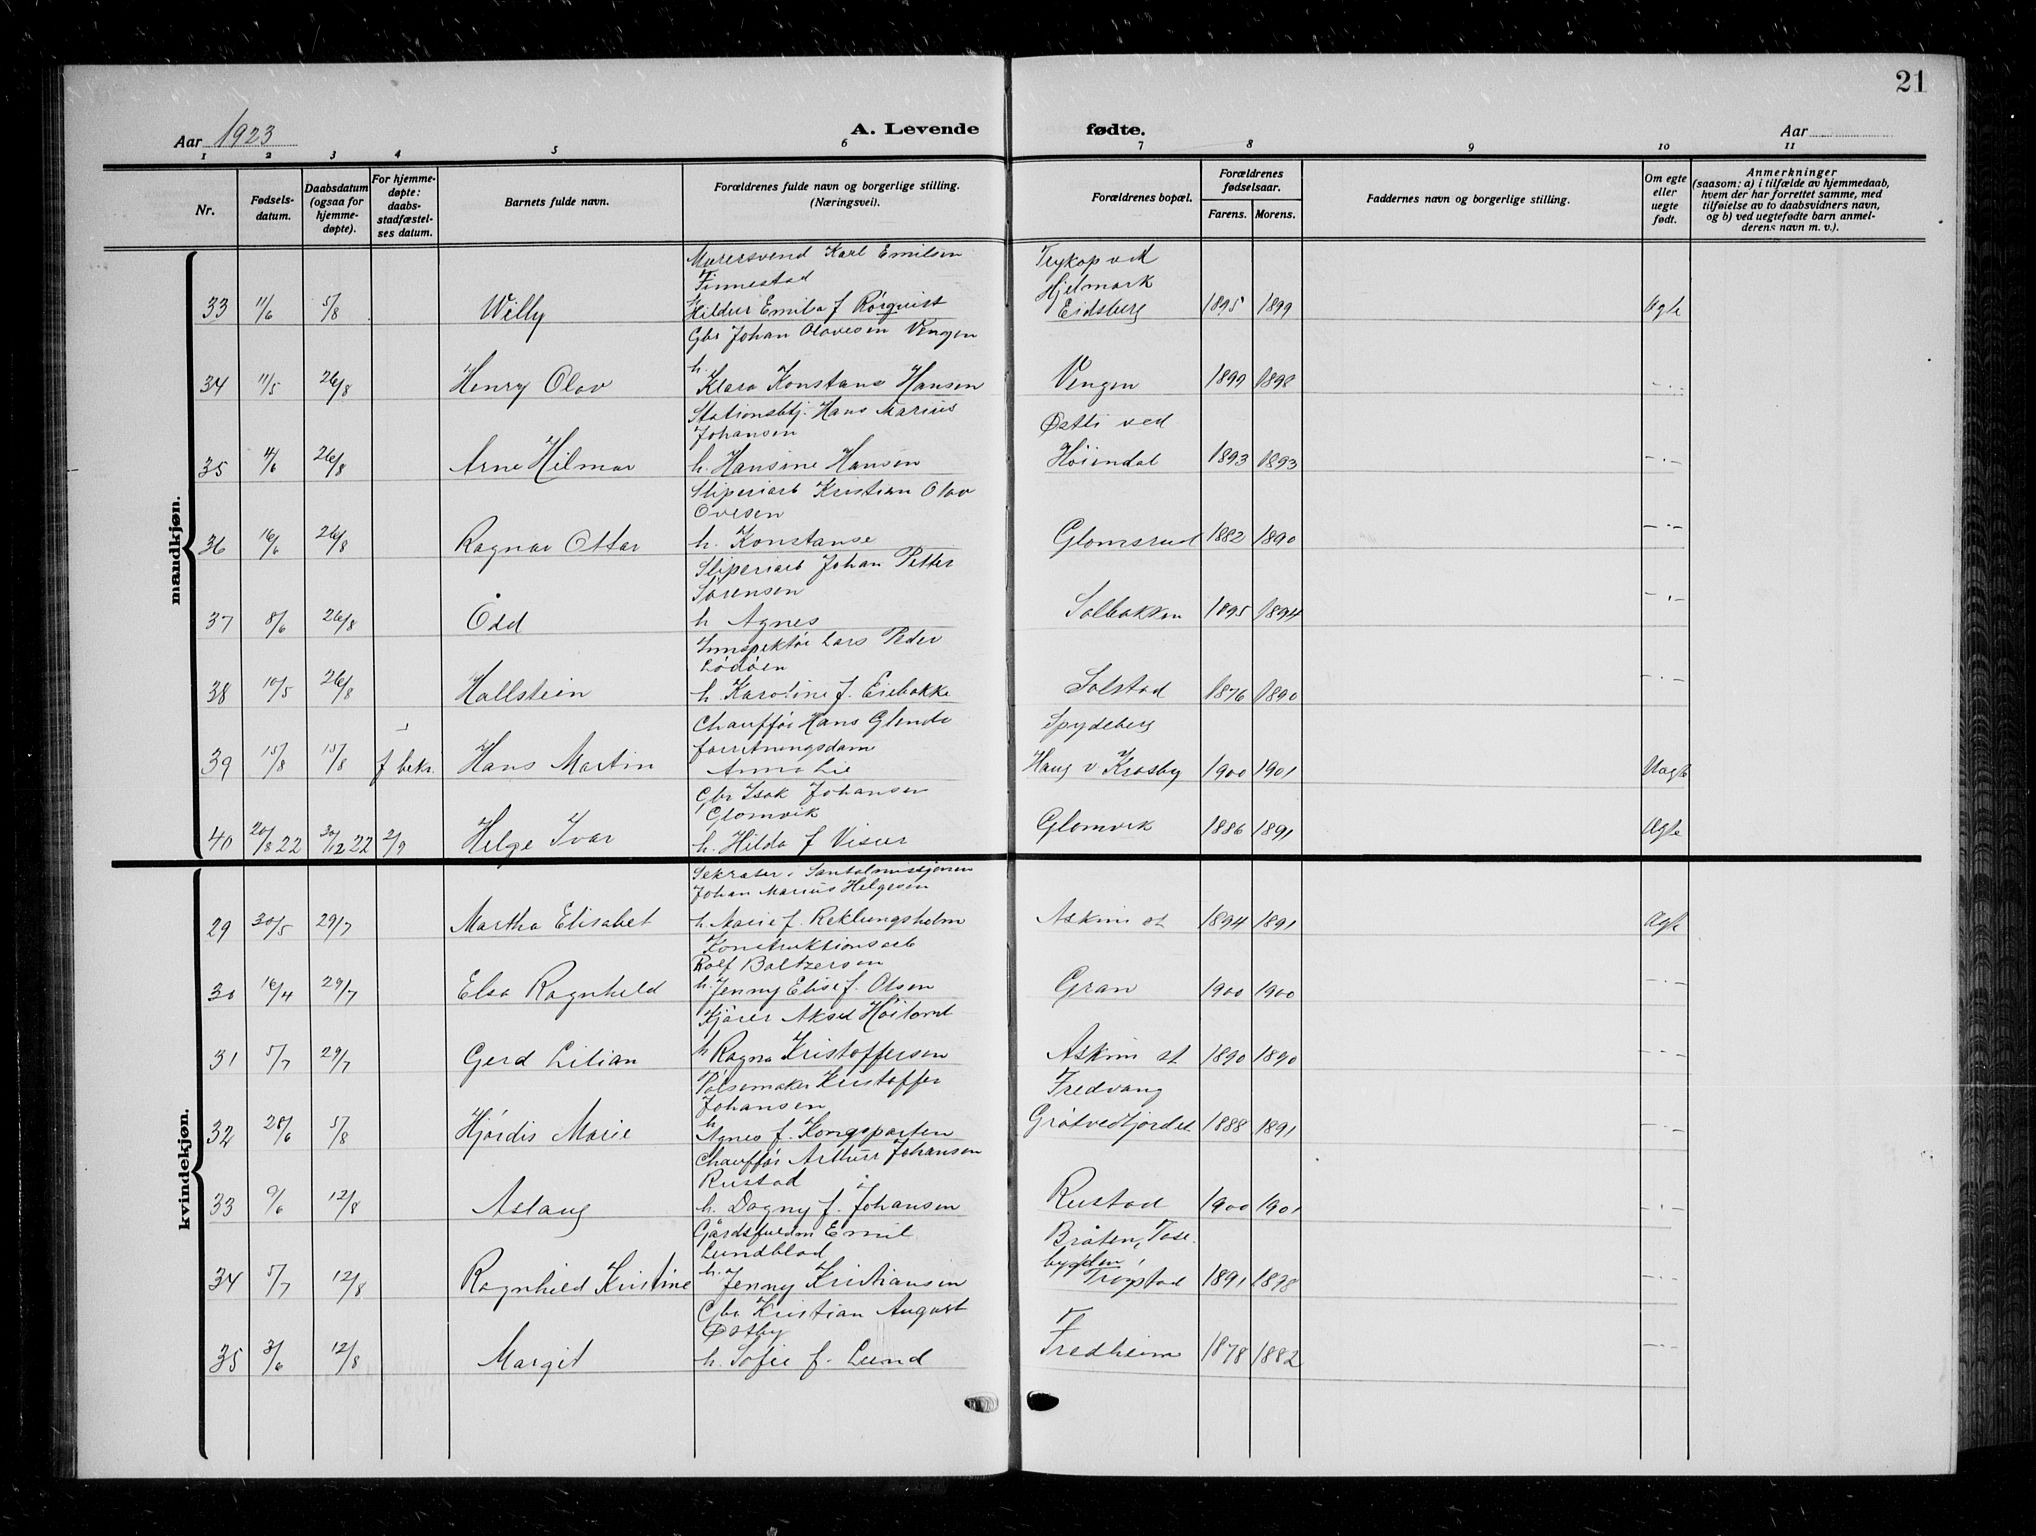 21
Aar 1923
A. Levende fødte.
Aar
1 2 3 4 5 6 7 8 9 10 11
Nr.
Fødsels-
datum.
Daabsdatum
(ogsaa for
hjemme-
døpte).
For hjemme-
døpte:
daabs-
stadfæstel-
ses datum.
Barnets fulde navn.
Forældrenes fulde navn og borgerlige stilling.
(Næringsvei).
Forældrenes bopæl.
Forældrenes
fødselsaar.
Farens. Morens.
Faddernes navn og borgerlige stilling.
Om egte
eller
uegte
født.
Anmerkninger
(saasom: a) i tilfælde av hjemmedaab,
hvem der har forrettet samme, med
tilføielse av to daabsvidners navn,
og b) ved uegtefødte barn anmel-
derens navn m. v.).
mandkjøn.
Murersvend Karl Emilsen
Finnestad
33 11/6 5/8 Willy
Hildur Emilia f Rörqvist
Hjelmark
Eidsberg 1895 1899 Ægte
Gbr Johan Olavesen Vengen
34 11/5 26/8 Henry Olav
h. Klara Konstans Hansen
Vengen 1899 1898 -"-
Stationsbtj. Hans Marius
Johansen
35 4/6 26/8 Arne Hilmar
h. Hansine Hansen
Østli ved
Höiendal 1893 1893 -"-
Sliperiarb Kristian Olav
Ovesen
36 16/6 26/8 Ragnar Ottar
h. Konstanse
Glomsrud 1882 1890 -"-
Sliperiarb Johan Petter
Sörensen
37 8/6 26/8 Odd
h Agnes
Solbakken 1895 1894 -"-
Innspektör Lars Peder
Lödöen
38 10/5 26/8 Hallstein
h Karoline f. Eiebakke
Solstad 1876 1890 -"-
Chafför Hans Glende
forretningsdam
39 15/8 15/8 f bekr. Hans Martin
Anna Lie
Spydeberg
Haug v Krosby 1900 1901 Uegte
Gbr Isak Johansen
Glomvik
40 20/8 22 30/12 22 2/9 Helge Ivar
h. Hilda f Visur
Glomvik 1886 1891 Ægte
kvindekjøn.
Sekretær i Santalmissjonen
Johan Marius Helgesen
29 30/5 29/7 Martha Elisabet
h Marie f. Reklungsholm
Askim st 1894 1891 Ægte
Konstruktionsarb
Rolf Baltzersen
30 16/4 29/7 Elsa Ragnhild
h. Jenny Elise f. Olsen
Gran 1900 1900 -"-
Kjörer Aksel Höitomt
31 5/7 29/7 Gerd Lilian
h Ragna Kristoffersen
Askim st 1890 1890 -"-
Pölsemaker Kristoffer
Johansen
32 28/6 5/8 Hjördis Marie
h Agnes f. Kongsparten
Fredvang
Grötvedtjordet 1888 1891 -"-
Chafför Arthur Johansen
Rustad
33 9/6 12/8 Aslaug
h. Dagny f. Johansen
Rustad 1900 1901 -"-
Gårdsfuldm Emil
Lundblad
34 5/7 12/8 Ragnhild Kristine
h. Jenny Kristiansen
Bråten, Tose-
bygden
Trögstad 1891 1898 -"-
Gbr Kristian August
Østby
35 3/6 12/8 Margit
h. Sofie f. Lund
Fredheim 1878 1882 -"-